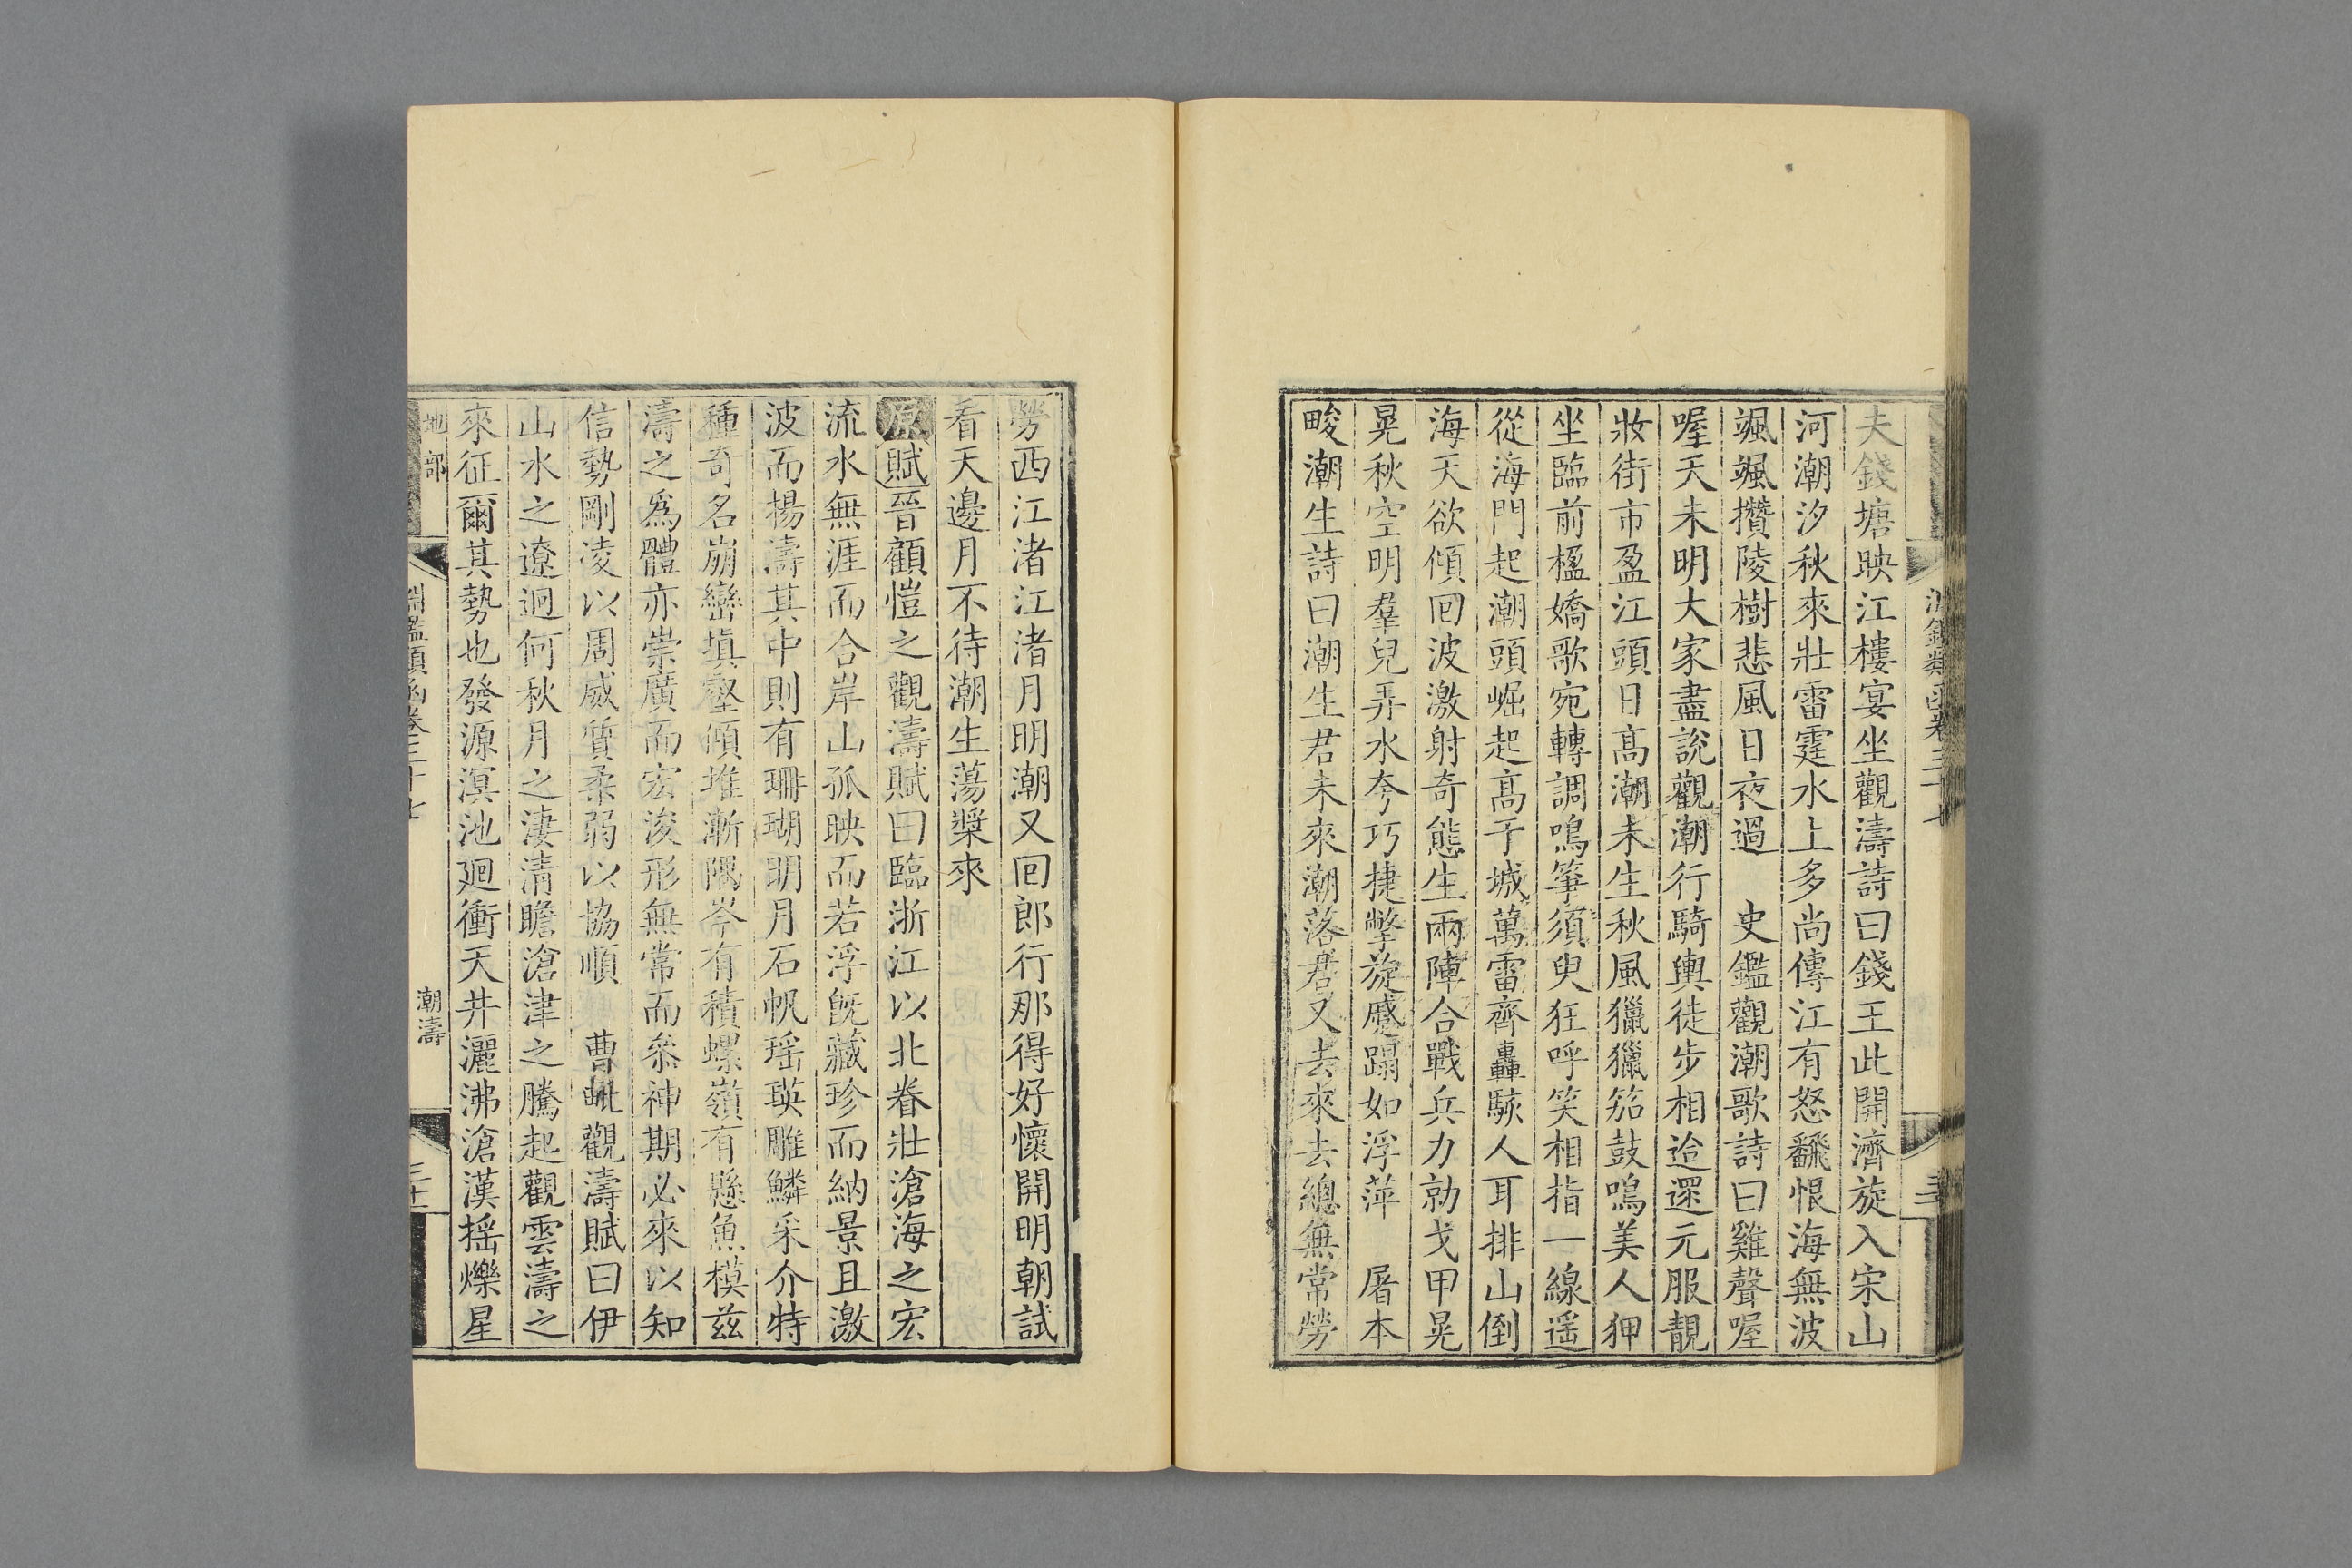 夫錢塘映江樓宴坐觀濤詩曰錢王此開濟旋入宋山
河潮汐秋來壯雷霆水上多尚傳江有怒飜恨海無波
颯颯攢陵樹悲風日夜過　史鑑觀潮歌詩曰雞聲喔
喔天未明大家盡說觀潮行騎輿徒步相迨遝元服靚
妝街市盈江頭日髙潮未生秋風獵獵笳鼓鳴美人狎
坐臨前楹嬌歌宛轉調鳴箏須臾狂呼笑相指一線遥
從海門起潮頭崛起髙于城萬雷齊轟駭人耳排山倒
海天欲傾囘波激射奇態生兩陣合戰兵力勍戈甲晃
晃秋空明羣兒弄水夸巧捷撆旋蹙蹋如浮萍　屠本
畯潮生詩曰潮生君未來潮落君又去來去總無常勞
勞西江渚江渚月明潮又囘郎行那得好懷開明朝試
看天邊月不待潮生蕩槳來
原賦晉顧愷之觀濤賦曰臨浙江以北眷壯滄海之宏
流水無涯而合岸山孤映而若浮旣藏珍而納景且激
波而揚濤其中則有珊瑚明月石帆瑶瑛雕鱗采介特
種奇名崩巒填壑傾堆漸隅岑有積螺嶺有懸魚模兹
濤之爲體亦崇廣而宏浚形無常而叅神期必來以知
信勢剛凌以周威質柔弱以協順　曹毗觀濤賦曰伊
山水之遼迥何秋月之淒清瞻滄津之騰起觀雲濤之
來征爾其勢也發源溟池廻衝天井灑沸滄漢摇爍星
地部
淵鑑類函卷三十七
潮濤